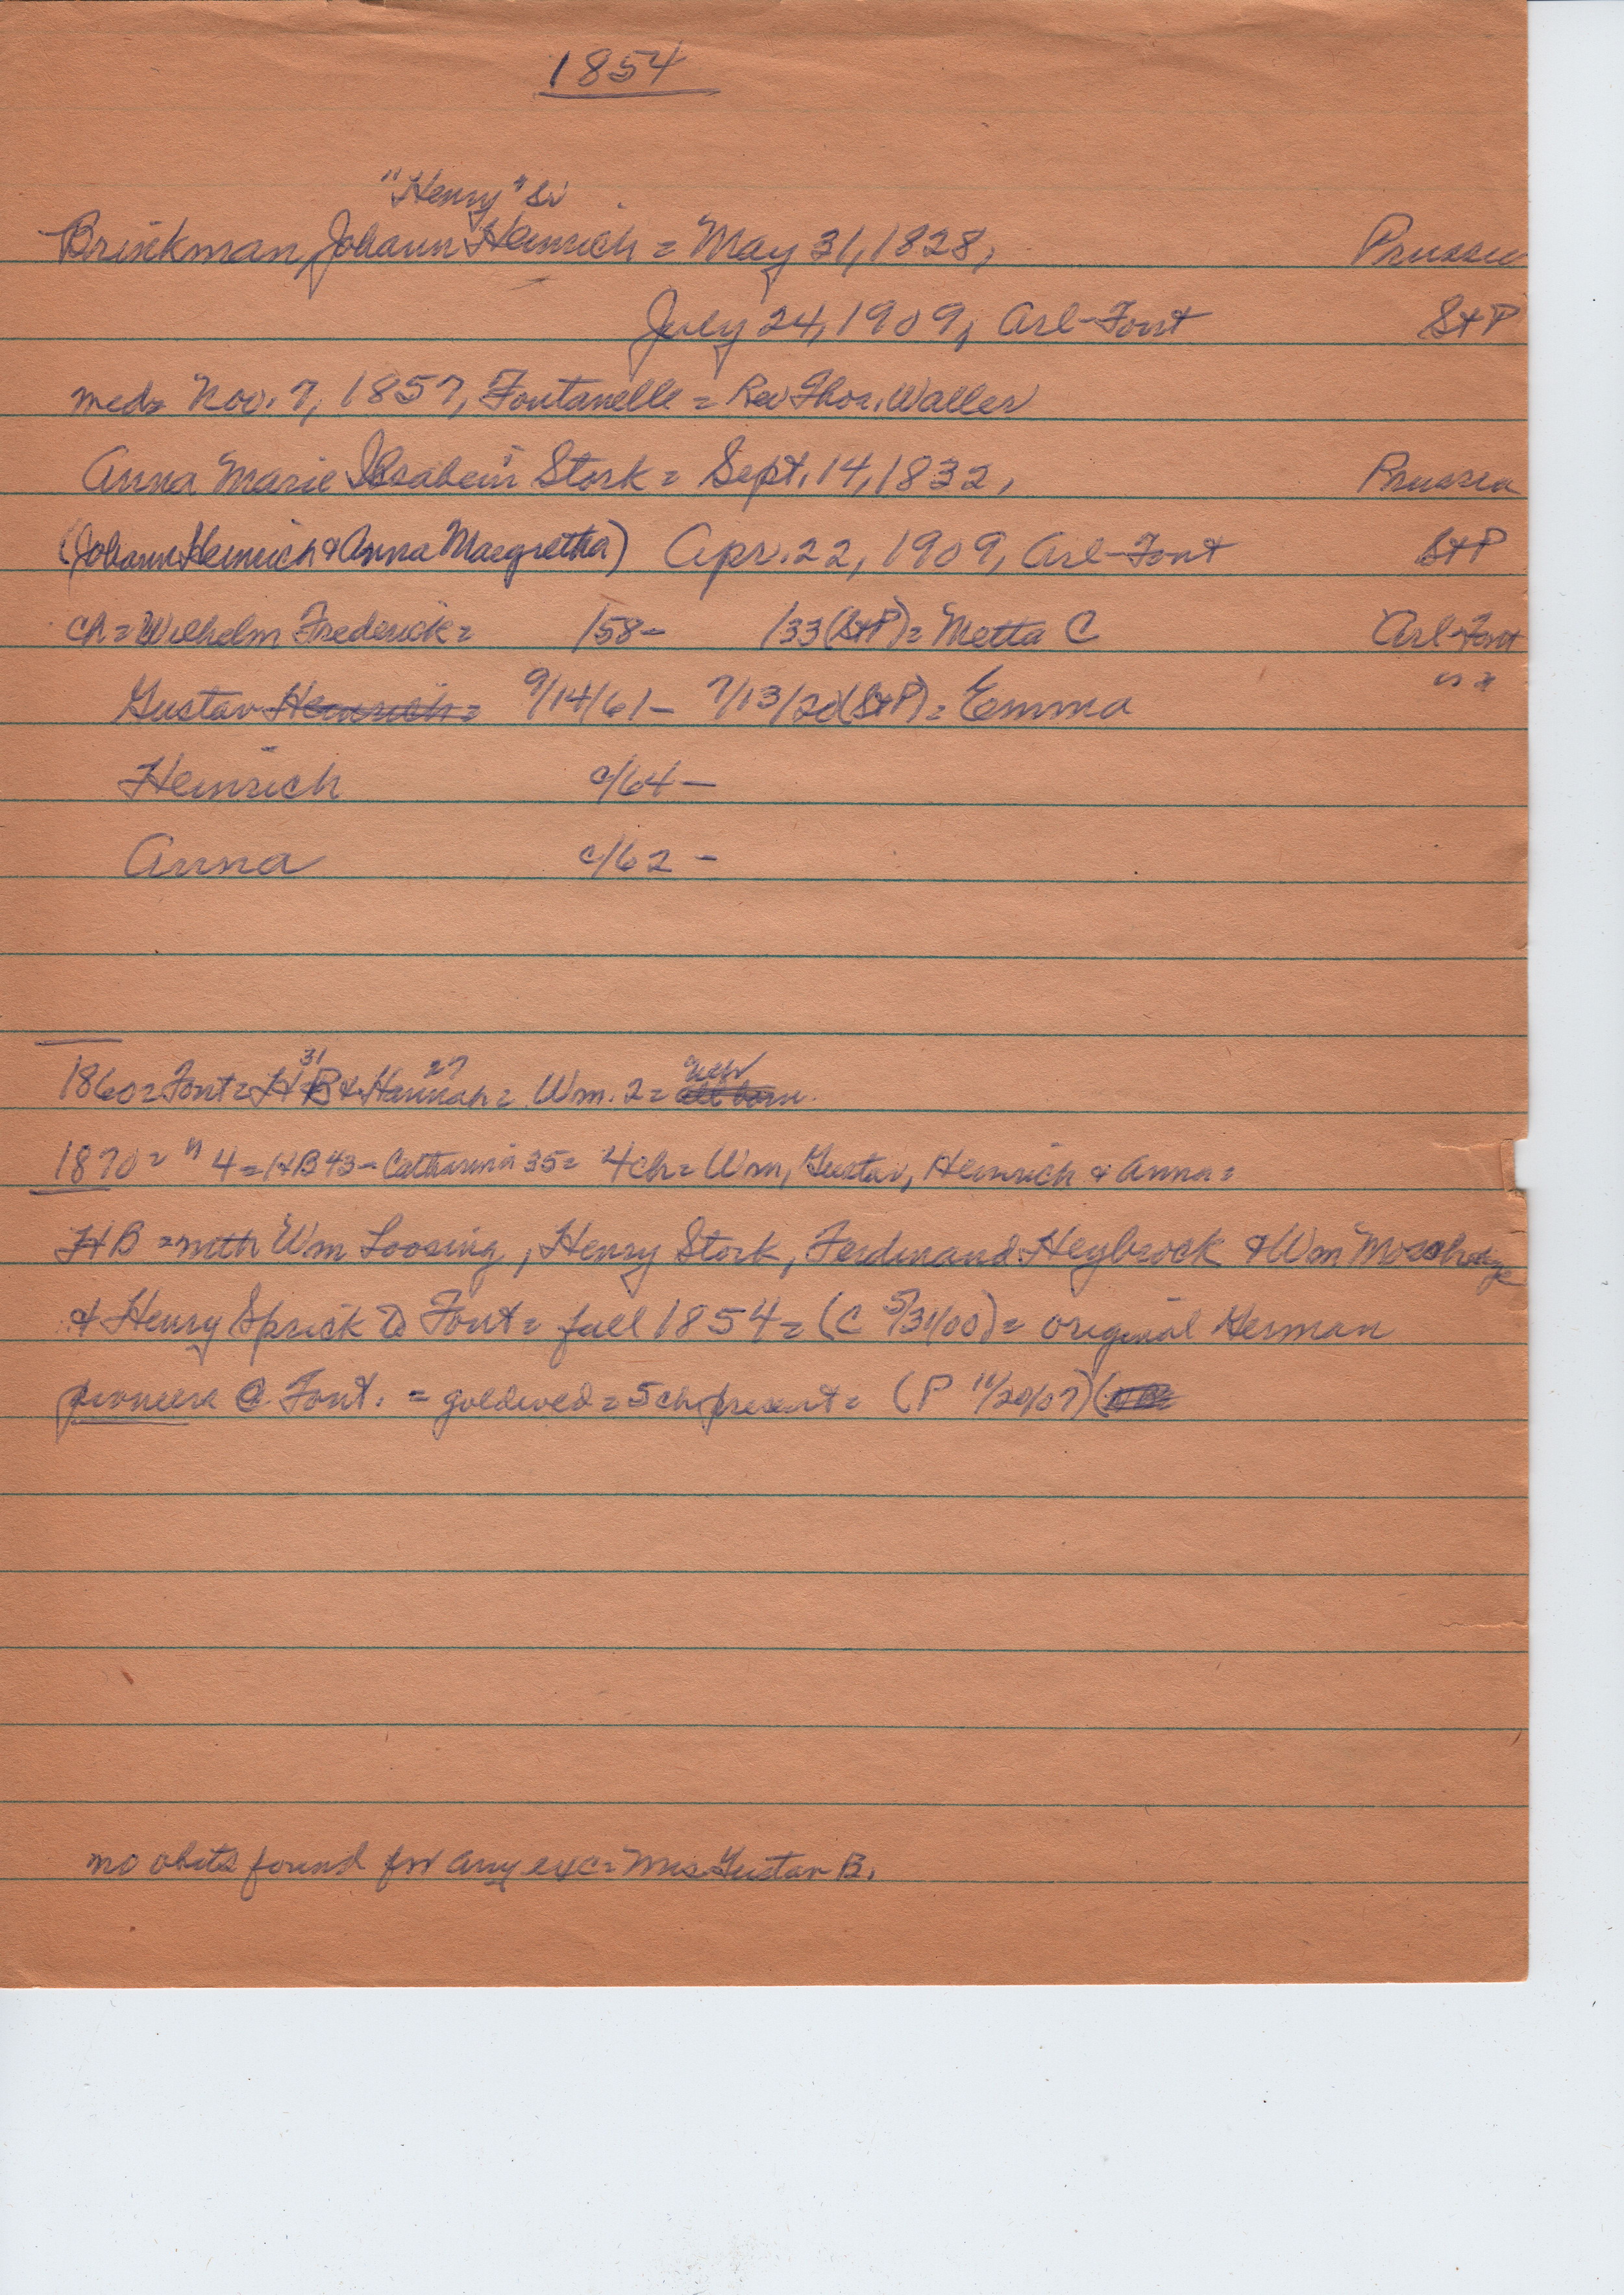 1854
"Henry" Sr
Brinkman, Johann Heinrich = May 31, 1828, Prussia
July 24, 1909, Arl-Font St P
med= Nov. 7, 1857, Fontanelle = Rev Thos. Waller
Anna Marie Stork = Sept. 14, 1832, Prussia
(Johann Heinrich & Anna Margretha) Apr. 22, 1909, Arl-Font St P
ch = Wilhelm Frederick = /58 - /33 (St P) = Metta C Arl-Font
Gustav Heinrich = 9/14/61 - 7/13/20 (St P) = Emma " "
Heinrich c/64 -
Anna c/62 -
31 27
1860 = Font = H B & Hannah = Wm. 2 =
1870 = " 4 = HB 43 - Catharina 35 = 4 ch = Wm, Gustav, Heinrich & Anna =
HB = with Wm Loosing, Henry Stork, Ferdinand Heybrock & Wm
& Henry Sprick to Font = fall 1854 = (C 5/31/00) = original German
pioneers @ Font. = goldwed = 5 ch present = (P 11/20/07) (
no obits found for any exc = Mrs Gustav B.